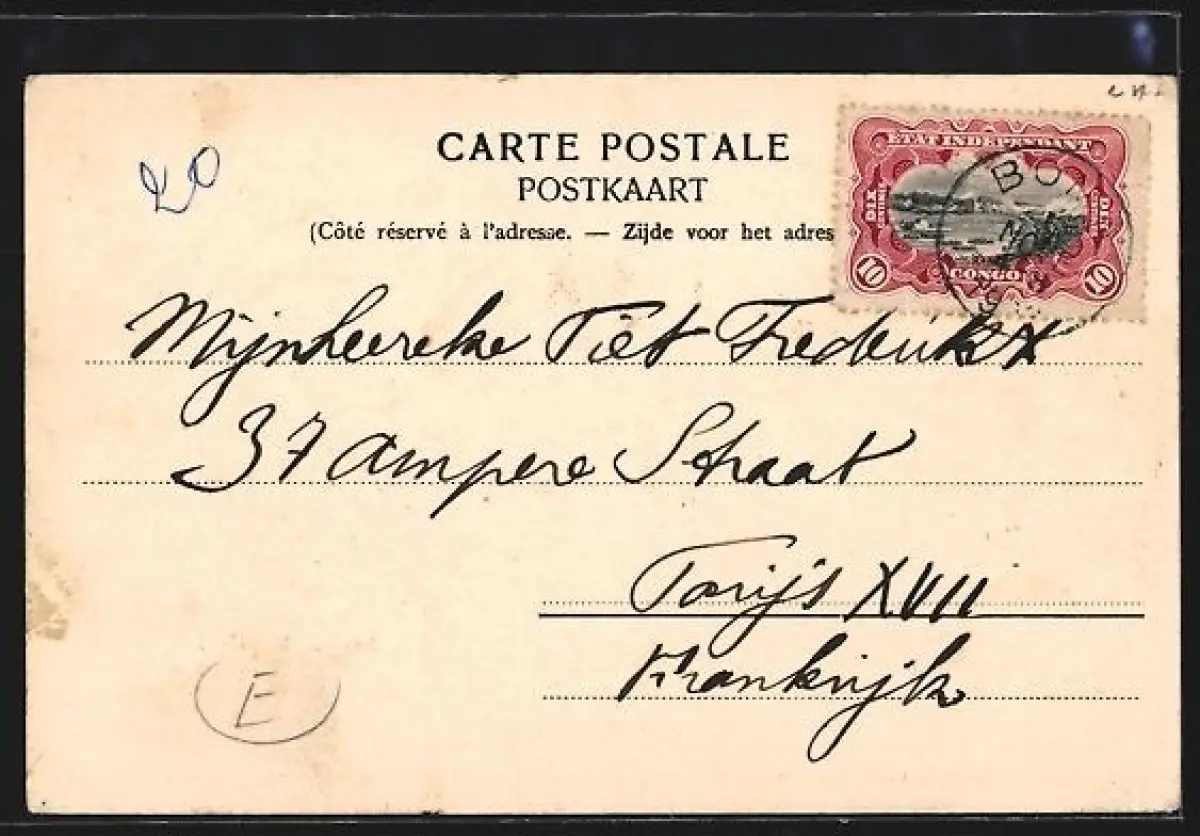 CARTE POSTALE
POSTKAART
(Côté réservé à l'adresse. — Zijde voor het adres
20
ETAT INDÉPENDANT
DU
CONGO
DIX
10
10
BO
Mijnheereke Piet Frederikx
37 Ampere Straat
Parijs XVII
Frankrijk
E